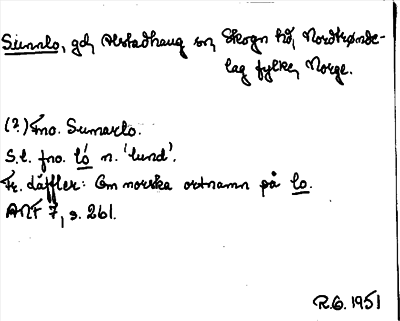 Sunnlo, gd, Alstadhaug sn, Skogn hd, Nordtrønde-
lag fylke, Norge.
(?) Fno. Sumarlo.
S.l. fno. ló n. 'lund'.
Fr. Läffler: Om norska ortnamn på lo.
ANF 7, s. 261.
R.G. 1951